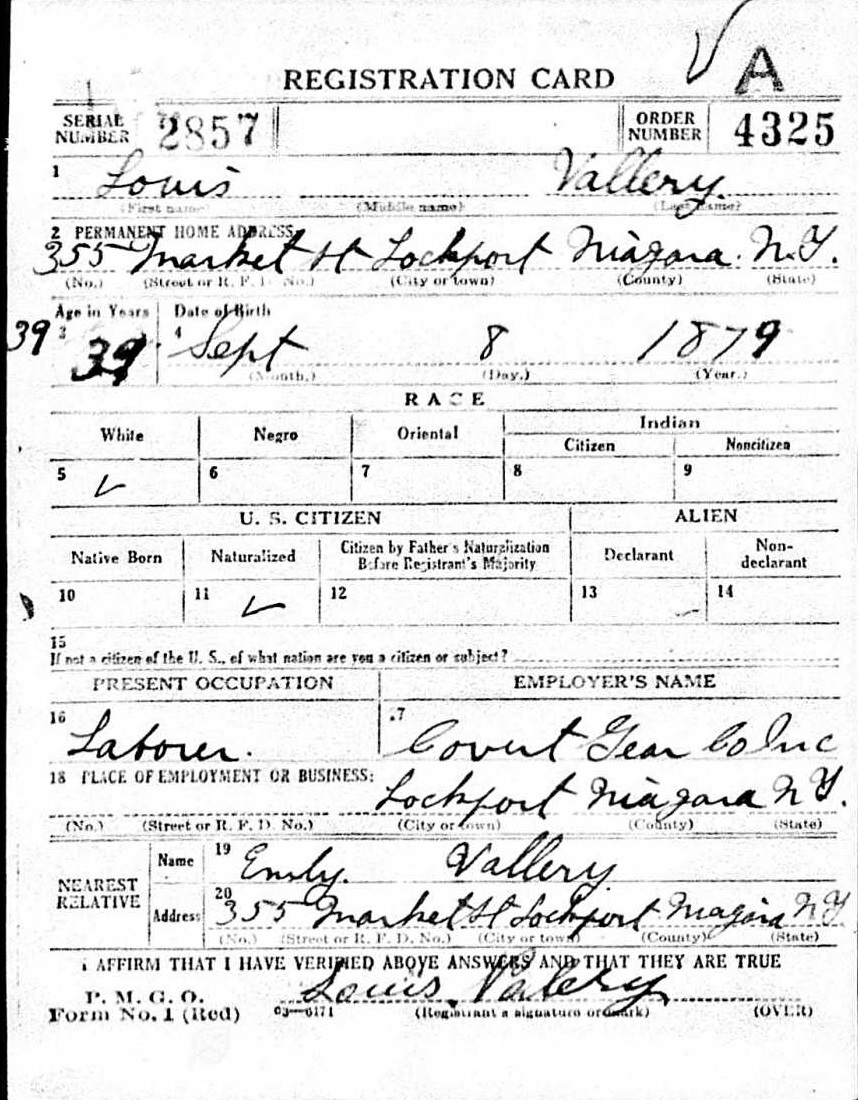 A
REGISTRATION CARD
SERIAL NUMBER 2857 ORDER NUMBER 4325
1 Louis Vallery
(First name) (Middle name) (Last name)
2 PERMANENT HOME ADDRESS:
355 Market St Lockport Niagara N.Y.
(No.) (Street or R. F. D. No.) (City or town) (County) (State)
Age in Years Date of Birth
39 3 39 4 Sept 8 1879
(Month.) (Day.) (Year.)
RACE
White Negro Oriental Indian
Citizen Noncitizen
5 ✓ 6 7 8 9
U. S. CITIZEN ALIEN
Native Born Naturalized Citizen by Father's Naturalization Before Registrant's Majority Declarant Non-declarant
10 11 ✓ 12 13 14
15
If not a citizen of the U. S., of what nation are you a citizen or subject?
PRESENT OCCUPATION EMPLOYER'S NAME
16 Laborer. 17 Covert Gear Co Inc
18 PLACE OF EMPLOYMENT OR BUSINESS:
Lockport Niagara N.Y.
(No.) (Street or R. F. D. No.) (City or town) (County) (State)
NEAREST RELATIVE Name 19 Emly. Vallery
Address 20 355 Market St Lockport Niagara N.Y.
(No.) (Street or R. F. D. No.) (City or town) (County) (State)
I AFFIRM THAT I HAVE VERIFIED ABOVE ANSWERS AND THAT THEY ARE TRUE
P. M. G. O.
Form No. 1 (Red) 03—6171 Louis Valery
(Registrant's signature or mark) (OVER)